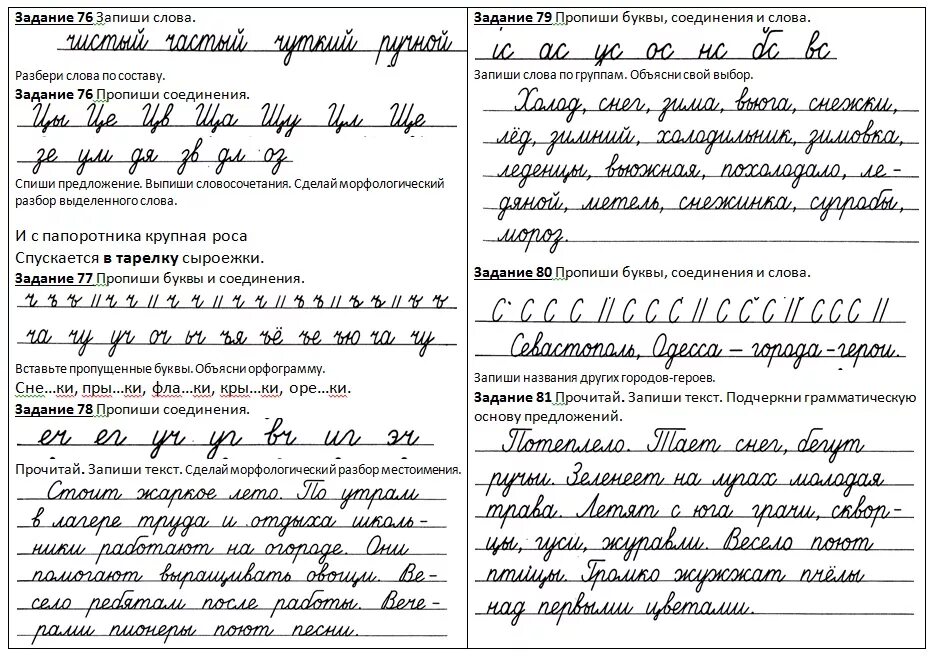 Задание 76 Запиши слова.
чистый частый чуткий ручной
Разбери слова по составу.
Задание 76 Пропиши соединения.
Цы Це Цв Ща Щу Цл Ще
зе ум дя зв дл оз
Спиши предложение. Выпиши словосочетания. Сделай морфологический
разбор выделенного слова.
И с папоротника крупная роса
Спускается в тарелку сыроежки.
Задание 77 Пропиши буквы и соединения.
ч ъ ъ // ч ч // ч ч // ч ч // ъ ъ // ъ ъ // ъ ъ
ча чу уч оч ьч ъя ъё ъе ъю ча чу
Вставьте пропущенные буквы. Объясни орфограмму.
Сне...ки, пры...ки, фла...ки, кры...ки, оре...ки.
Задание 78 Пропиши соединения.
еч ег уч уг вч иг эч
Прочитай. Запиши текст. Сделай морфологический разбор местоимения.
Стоит жаркое лето. По утрам
в лагере труда и отдыха школь-
ники работают на огороде. Они
помогают выращивать овощи. Ве-
село ребятам после работы. Вече-
рами пионеры поют песни.
Задание 79 Пропиши буквы, соединения и слова.
іс ас ус ос нс бс вс
Запиши слова по группам. Объясни свой выбор.
Холод, снег, зима, вьюга, снежки,
лёд, зимний, холодильник, зимовка,
леденцы, вьюжная, похолодало, ле-
дяной, метель, снежинка, сугробы,
мороз.
Задание 80 Пропиши буквы, соединения и слова.
С С С С // С С С // С С С // С С С //
Севастополь, Одесса – города-герои.
Запиши названия других городов-героев.
Задание 81 Прочитай. Запиши текст. Подчеркни грамматическую
основу предложений.
Потеплело. Тает снег, бегут
ручьи. Зеленеет на лугах молодая
трава. Летят с юга грачи, сквор-
цы, гуси, журавли. Весело поют
птицы. Громко жужжат пчёлы
над первыми цветами.